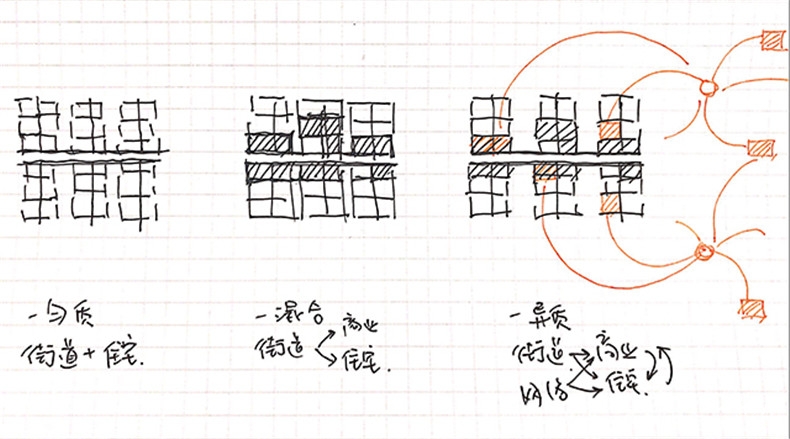 - 匀质
街道 + 住宅.
- 混合
街道 商业
住宅.
- 异质
街道 商业
网络 住宅.